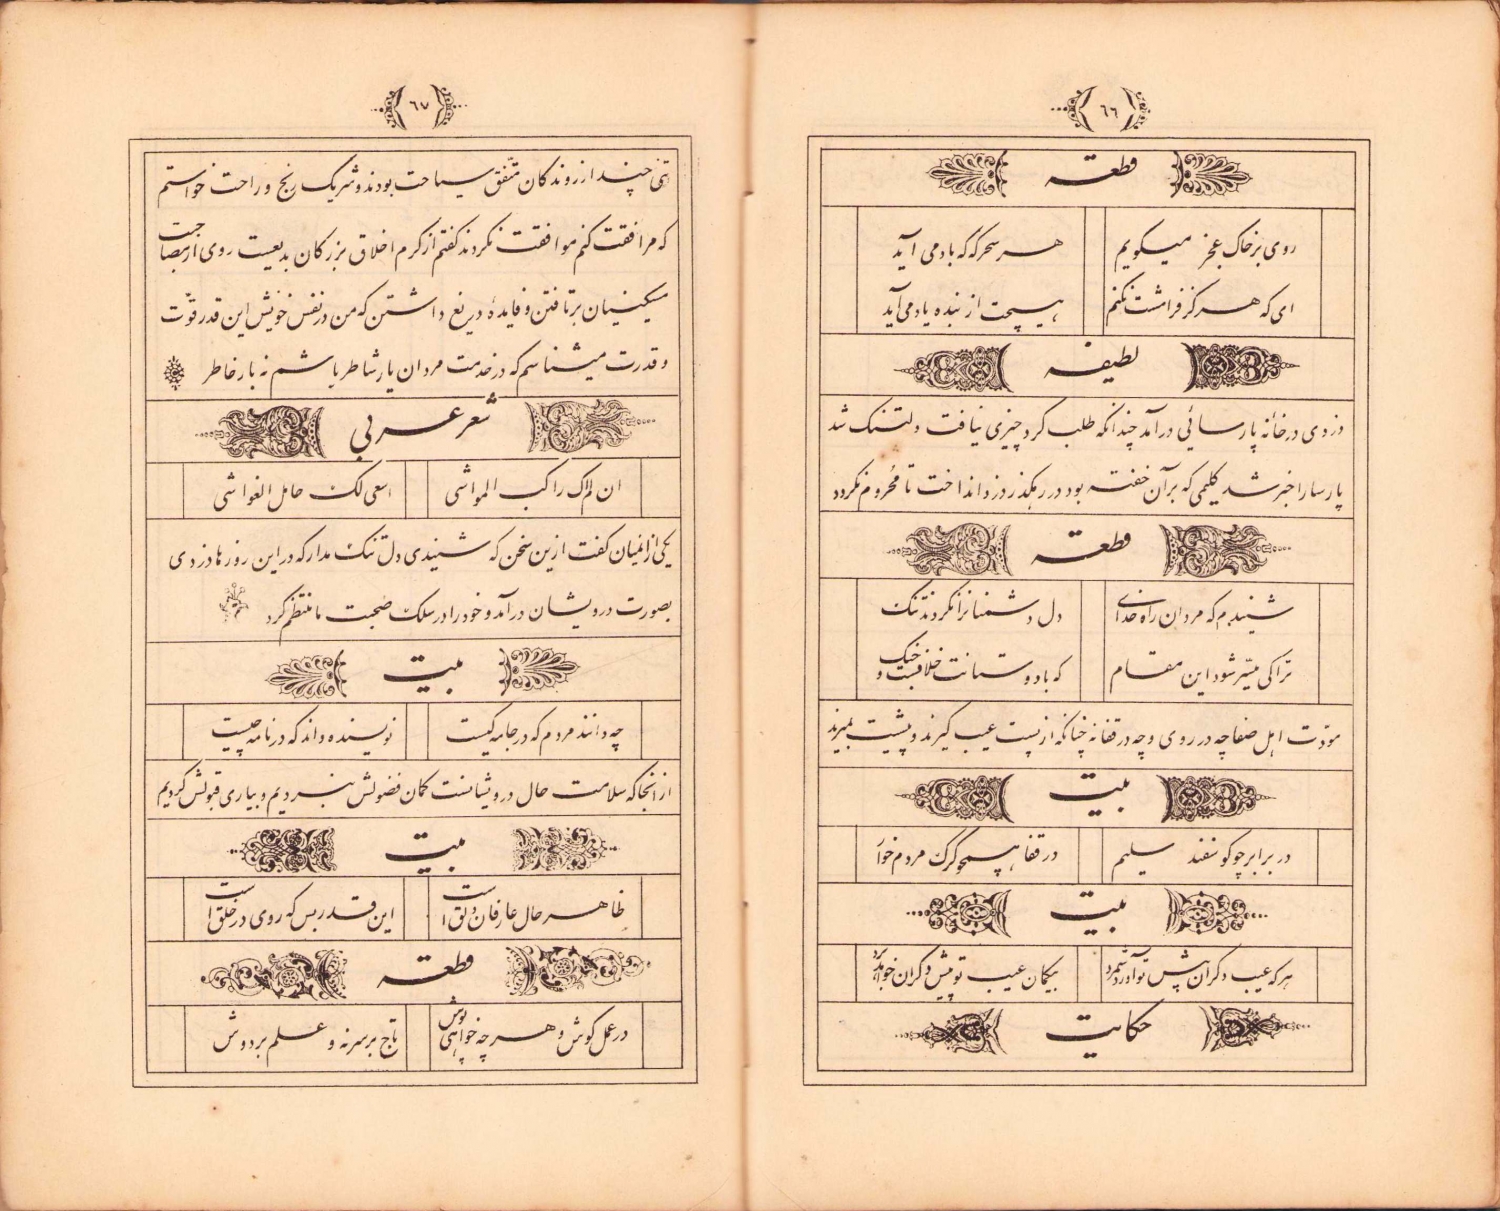 ٦٦
قطعه
روی بر خاک عجز میگویم
هر سحرگه که باد می آید
ای که هرگز فرامشت نکنم
هیچت از بنده یاد می آید
لطیفه
دزدی در خانه پارسائی درآمد چندانکه طلب کرد چیزی نیافت دلتنگ شد
پارسا را خبر شد گلیمی که بر آن خفته بود در رهگذر دزد انداخت تا محروم نگردد
قطعه
شنیدم که مردان راه خدای
دل دشمنان را نکردند تنگ
ترا کی میسر شود این مقام
که با دوستانت خلافست و جنگ
مودّت اهل صفا چه در روی و چه در قفا نه چنانکه از پست عیب گیرند و پیشت بمیرند
بیت
در برابر چو گوسفند سلیم
در قفا همچو گرگ مردم خوار
بیت
هر که عیب دگران پیش تو آورد و شمرد
بیگمان عیب تو پیش دگران خواهد برد
حکایت
٦٧
تنی چند از روندگان متّفق سیاحت بودند و شریک رنج و راحت خواستم
که مرافقت کنم موافقت نکردند گفتم از کرم اخلاق بزرگان بدیعست روی از مصاحبت
مسکینان برتافتن و فایده دریغ داشتن که من در نفس خویش این قدر قوّت
و قدرت میشناسم که در خدمت مردان یار شاطر باشم نه بار خاطر
شعر عربی
ان لم اک راکب المواشی
اسعی لک حامل الغواشی
یکی از انمیان گفت ازین سخن که شنیدی دل تنگ مدار که در این روزها دزدی
بصورت درویشان درآمد و خود را در سلک صحبت ما منتظم کرد
بیت
چه دانند مردم که در جامه کیست
نویسنده داند که در نامه چیست
از انجا که سلامت حال درویشانست گمان فضولش نبردیم و بیاری قبولش کردیم
بیت
ظاهر حال عارفان دلق است
این قدر بس که روی در خلق است
قطعه
در عمل کوش و هر چه خواهی پوش
تاج بر سر نه و علم بر دوش